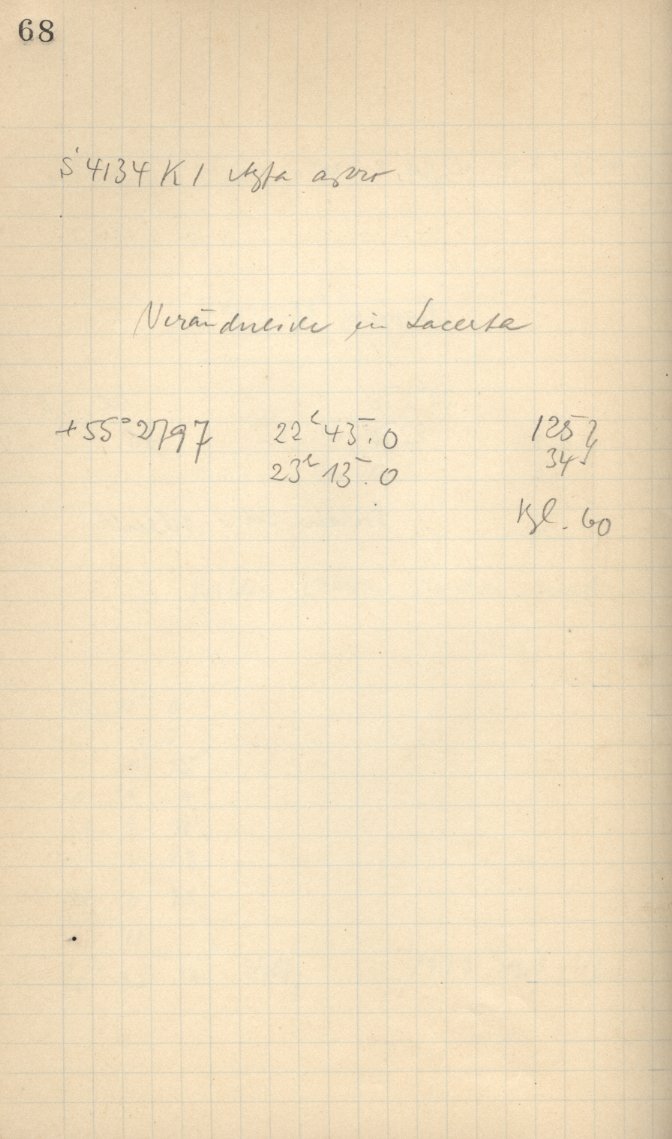 68
S 4134 K 1 Agfa astro
Veränderliche in Lacerta
+55° 2797 22ʰ 43ᵐ.0 125
23ʰ 13ᵐ.0 34
Kgl. 60